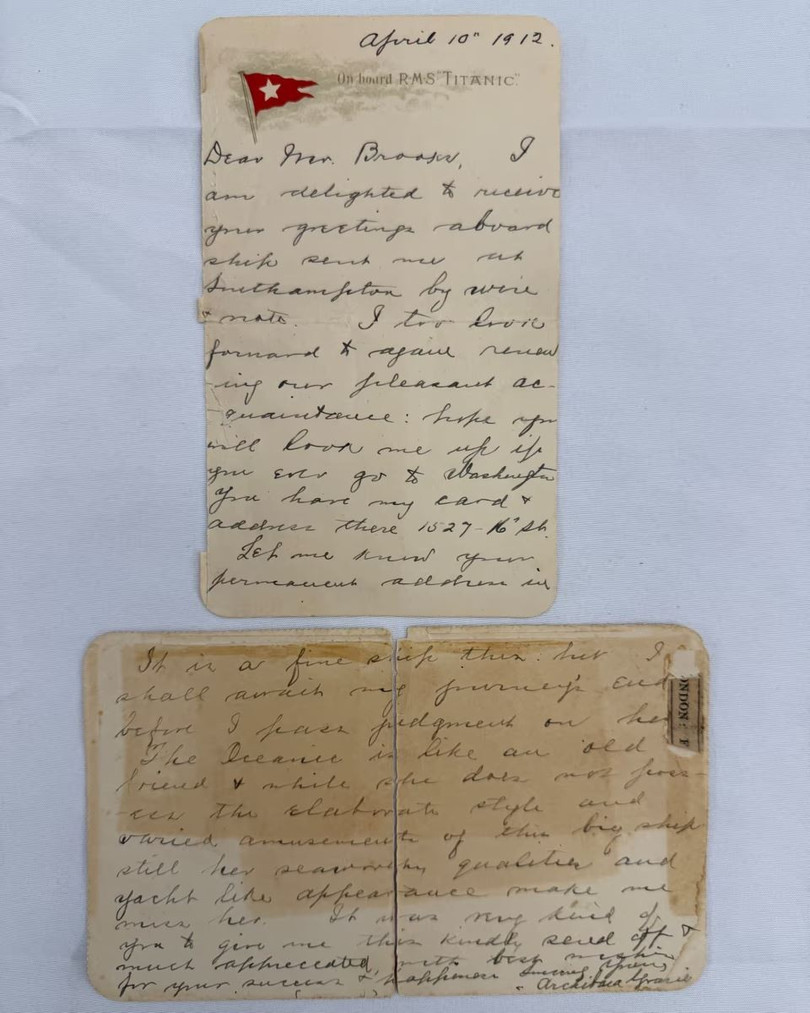 April 10" 1912.
On board R.M.S. "TITANIC."
Dear Mr. Brooks, I
am delighted to receive
your greetings aboard
ship sent me at
Southampton by wire
& note. I too look
forward to again renew
-ing our pleasant ac-
quaintance: hope you
will look me up if
you ever go to Washington
You have my card &
address there 1527-16" St.
Let me know your
permanent address in
It is a fine ship this. but I
shall await my journey's end
before I pass judgment on her
The Oceanic is like an old
friend & while she does not poss-
ess the elaborate style and
varied amusements of this big ship
still her seaworthy qualities and
yacht like appearance make me
miss her. It was very kind of
you to give me this kindly send off &
much appreciated, with best wishes
for your success & happiness
Archibald Gracie
ONDON: F